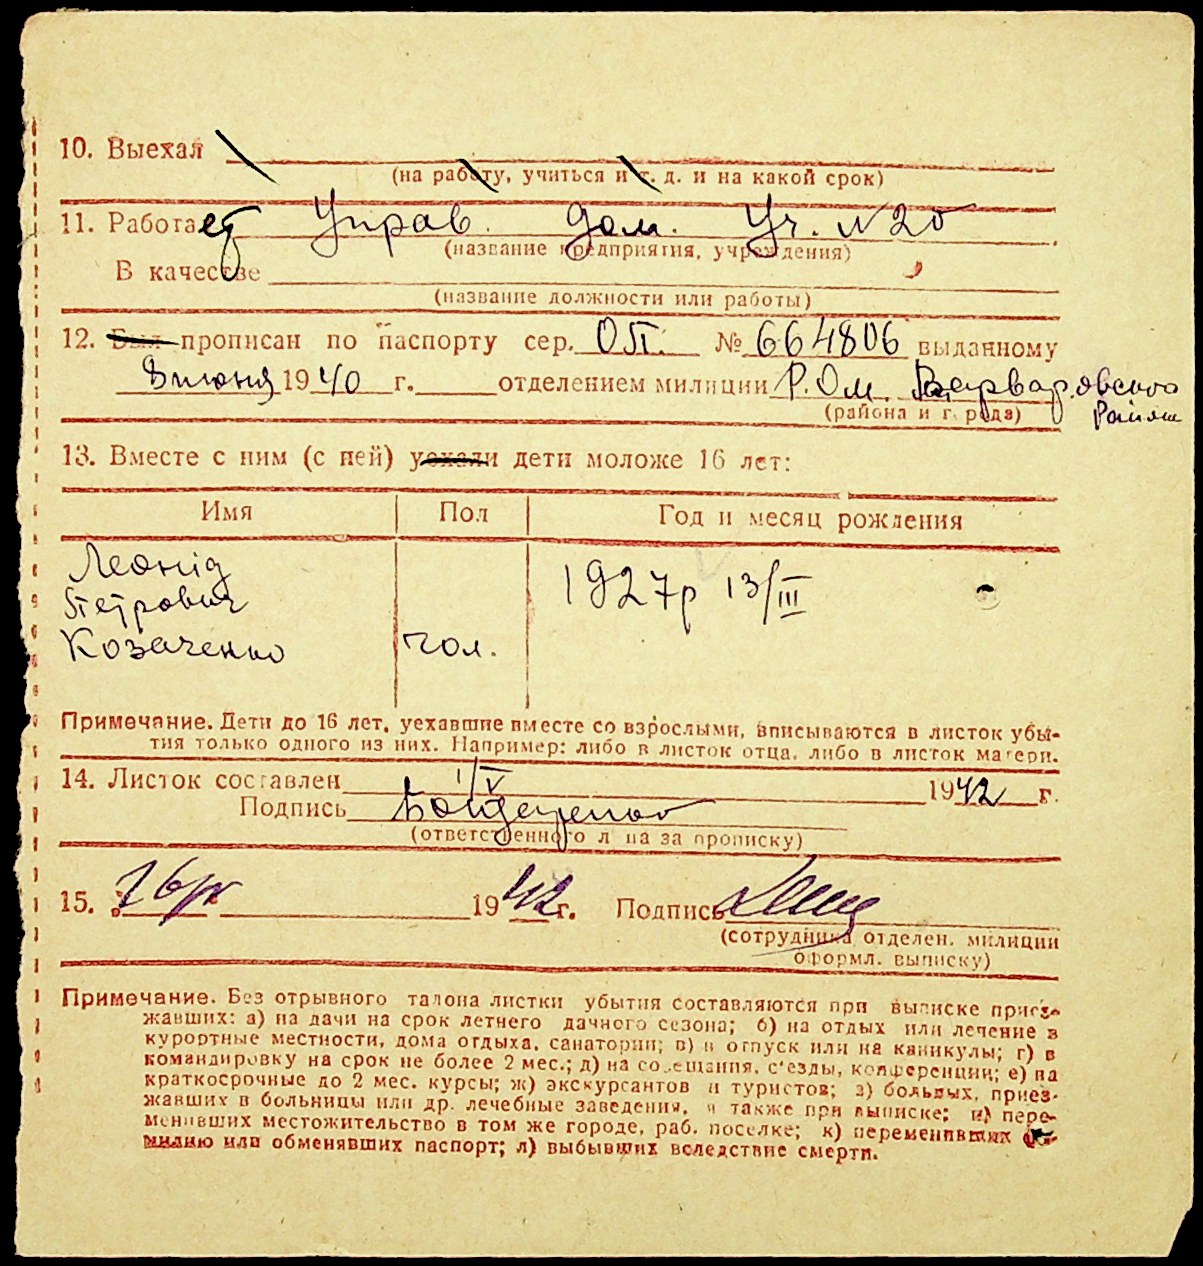 10. Выехал
(на работу, учиться и т. д. и на какой срок)
11. Работает Управ. дом. Уч. №20
(название предприятия, учреждения)
В качестве
(название должности или работы)
12. Был прописан по паспорту сер. ОП. № 664806 выданному
8 июня 1940 г. отделением милиции Р.Ом. Варваровского
(района и города) Района
13. Вместе с ним (с ней) уехали дети моложе 16 лет:
Имя Пол Год и месяц рождения
Леонід
Петрович 1927р 13/III
Козаченко чол.
Примечание. Дети до 16 лет, уехавшие вместе со взрослыми, вписываются в листок убы-
тия только одного из них. Например: либо в листок отца, либо в листок матери.
14. Листок составлен 1/V 1942 г.
Подпись
(ответственного лица за прописку)
15. 1942 г. Подпись
(сотрудника отделен. милиции
оформл. выписку)
Примечание. Без отрывного талона листки убытия составляются при выписке приез-
жавших: а) на дачи на срок летнего дачного сезона; б) на отдых или лечение в
курортные местности, дома отдыха, санатории; в) в отпуск или на каникулы; г) в
командировку на срок не более 2 мес.; д) на совещания, с'езды, конференции; е) на
краткосрочные до 2 мес. курсы; ж) экскурсантов и туристов; з) больных, приез-
жавших в больницы или др. лечебные заведения, а также при выписке; и) пере-
менивших местожительство в том же городе, раб. поселке; к) переменивших фа-
милию или обменявших паспорт; л) выбывших вследствие смерти.